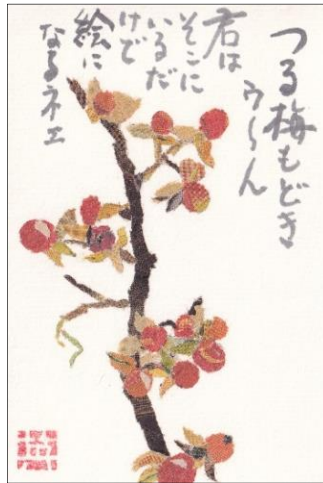 つる梅もどき
ウ〜ん
君は
そこに
いるだ
けで
絵に
なるネェ